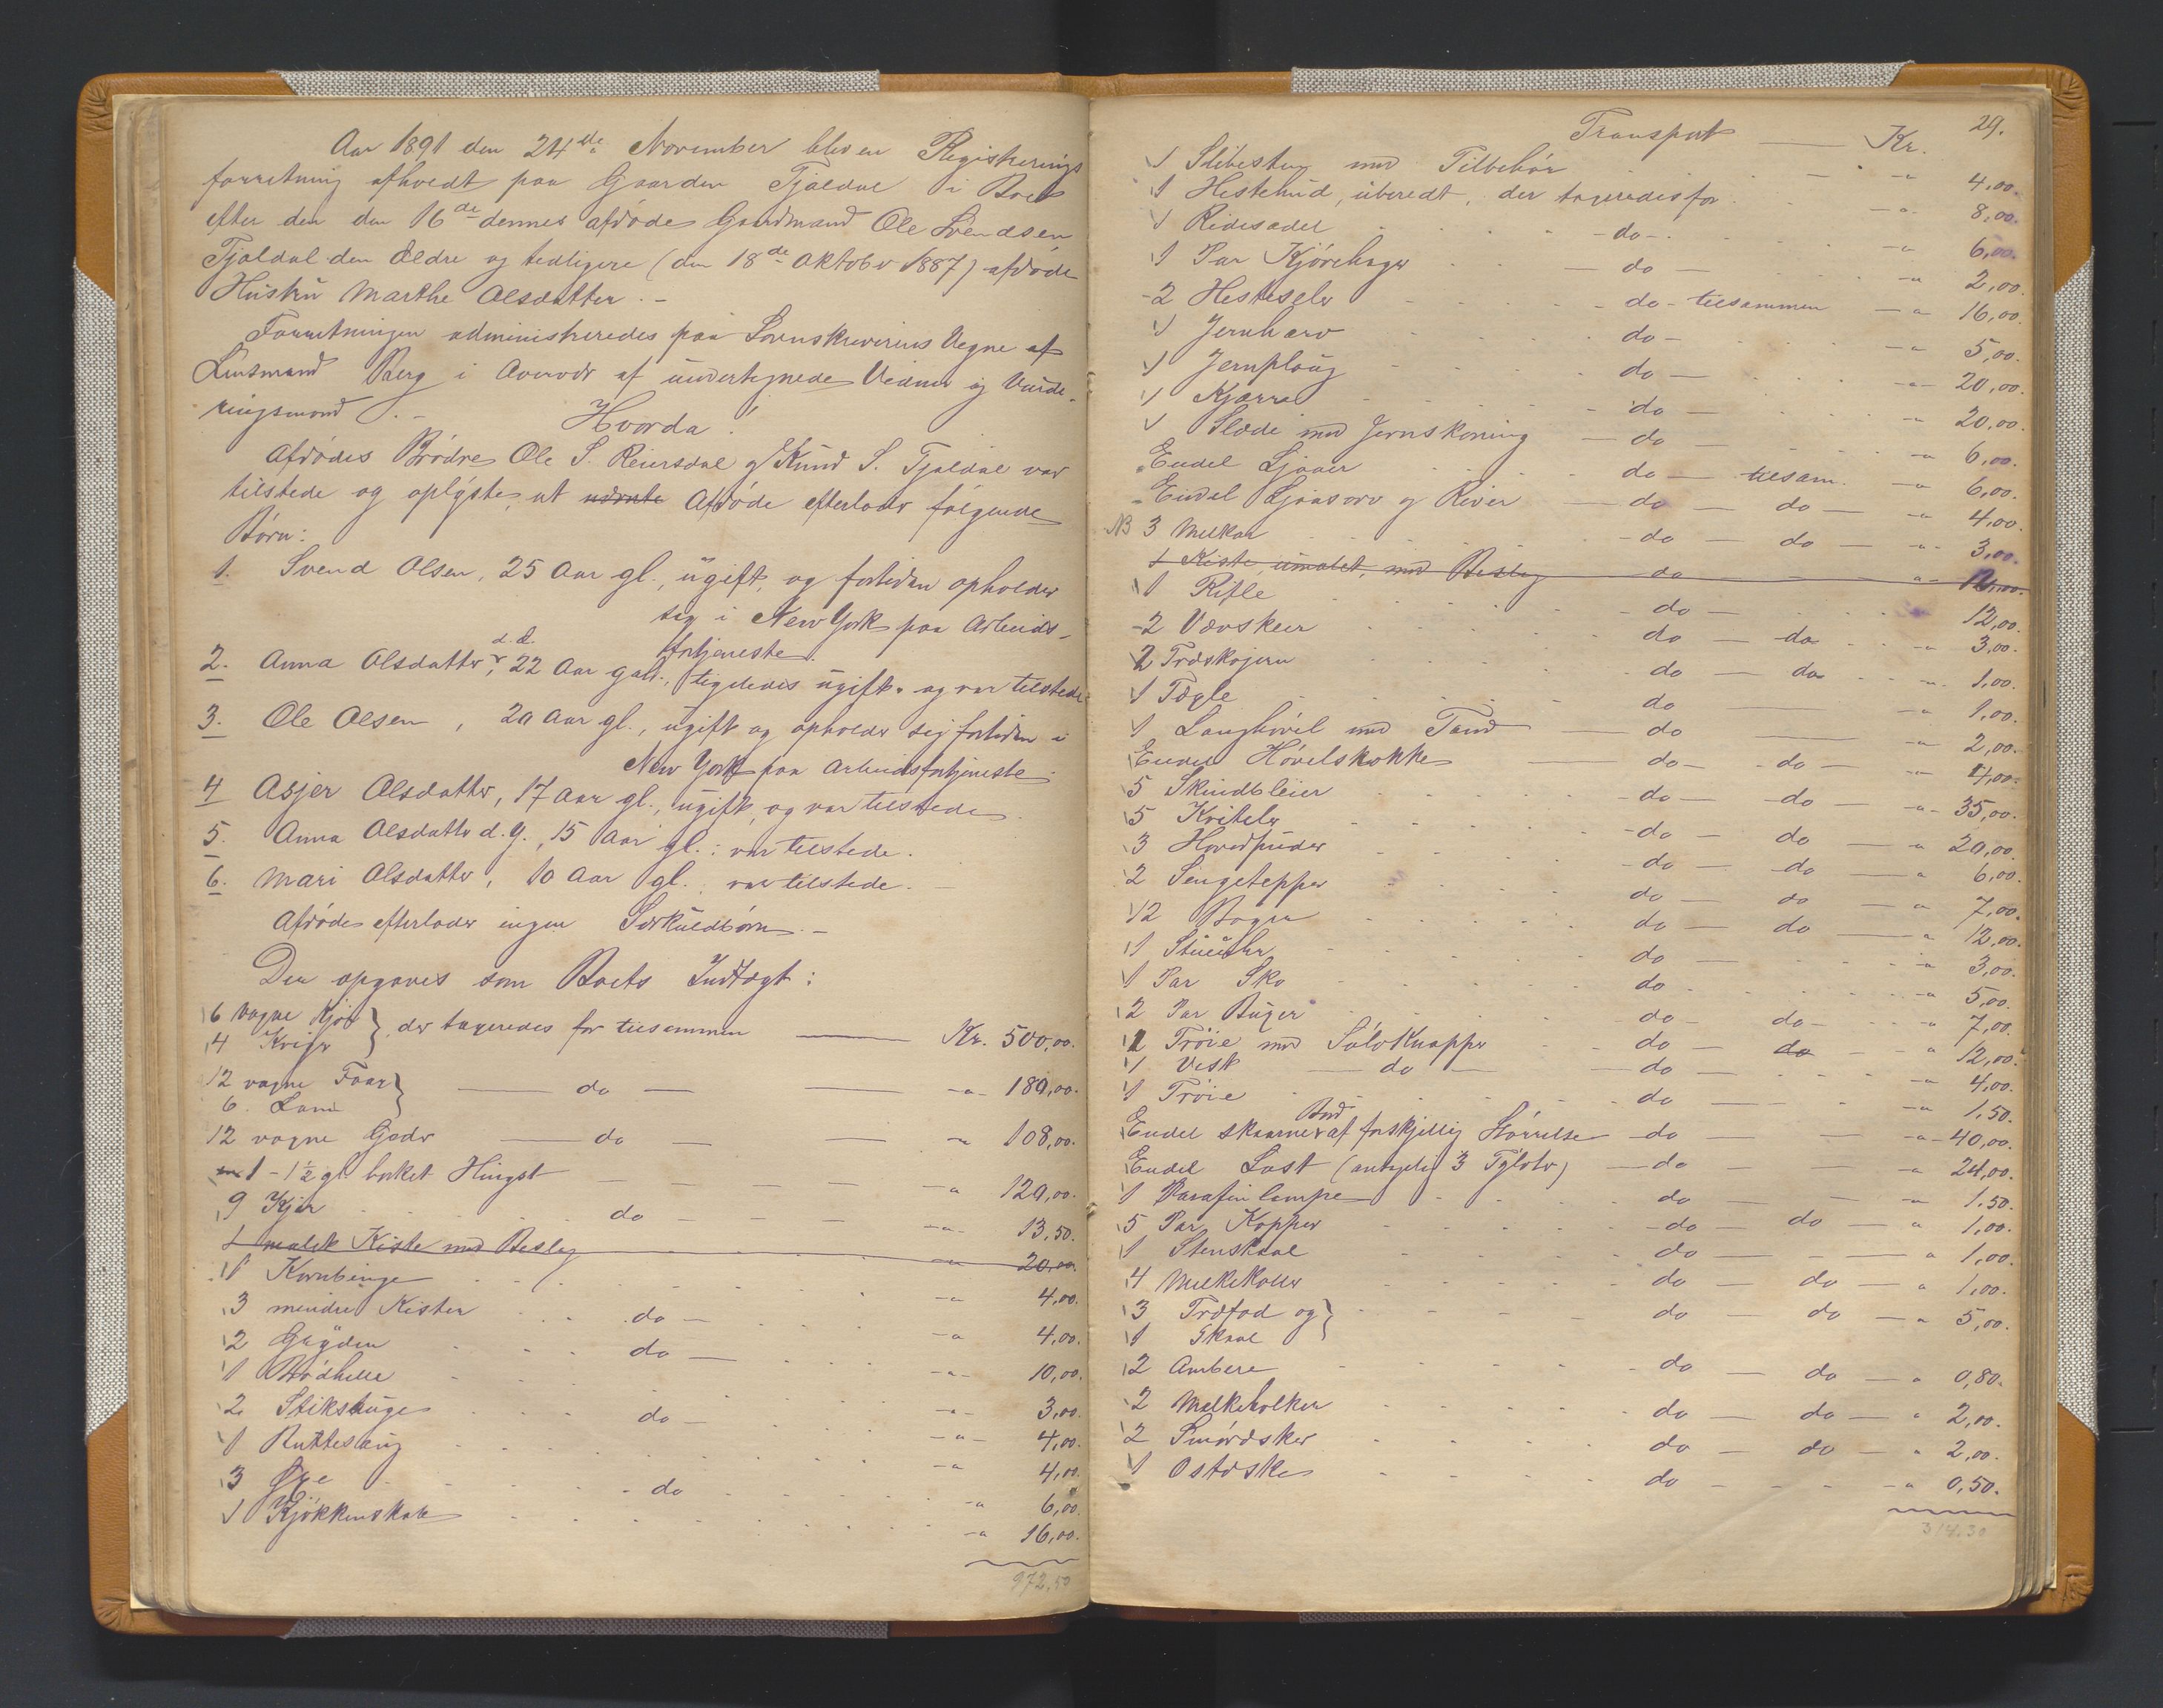 Aar 1891 den 24de November blev en Registrerings
forretning afholdt paa Gaarden Tjaldal i Boet
efter den den 16de dennes afdøde Gaardmand Ole Svendsen
Tjaldal den Ældre og tidligere (den 18de Oktober 1887) afdøde
Hustru Marthe Olsdatter. -
Forretningen administreredes paa Sorenskriverens Vegne af
Lensmand Berg i Overvær af undertegnede Vidner og Vurde-
ringsmænd. -
Hvorda!
Afdødes Brødre Ole S. Reiersdal og Knud S. Tjaldal var
tilstede og oplyste, at nævnte Afdøde efterlader følgende
Børn:
1. Svend Olsen, 25 Aar gl., ugift, og fortiden opholder
sig i New York paa Arbeids-
fortjeneste.
2. Anna Olsdatter d. Æ., 22 Aar gall., ligeledes ugift og var tilstede
3. Ole Olsen, 20 Aar gl., ugift og opholder sig fortiden i
New York paa Arbeidsfortjeneste.
4 Asjer Olsdatter, 17 Aar gl., ugift, og var tilstede.
5. Anna Olsdatter d. y., 15 Aar gl.: var tilstede.
6. Mari Olsdatter, 10 Aar gl.: var tilstede.
Afdøde efterlader ingen Særkuldbørn. -
Der opgaves som Boets Indtægt:
6 vagne Kjør
4 Kviger } der tageredes for tilsammen Kr. 500,00.
12 vagne Faar
6. Lam } do " 180,00.
12 vagne Geder do " 108,00.
1 - 1½ gl. borket Hingst " 120,00.
9 Kjør do " 13,50.
1 malet Kiste med Beslag " 20,00
1 Kornbinge " 4,00.
3 mindre Kister do " 4,00.
2 Gryder do " 10,00.
1 Brødhelle " 3,00.
2 Stiksauge do " 4,00.
1 Ruttesaug " 4,00.
3 Øxe do " 6,00.
1 Kjøkkenskab " 16,00.
972,50
29.
Transport Kr.
1 Slibesten med Tilbehør " 4,00.
1 Hestehud, uberedt, der tageredes for " 8,00.
1 Ridesadel do " 6,00.
1 Par Kjørehager do " 2,00.
2 Hesteseler do tilsammen " 16,00.
1 Jernharv do " 5,00.
1 Jernploug do " 20,00.
1 Kjærre do " 20,00.
1 Slæde med Jernskoning do " 6,00.
Endel Ljaaer do tilsam. " 6,00.
Endel Ljaaorv og River do do " 4,00.
NB 3 Melkar do do " 3,00.
1 Kiste, umalet, med Beslag do " 12,00.
1 Rifle do " 12,00.
2 Vævskeer do do " 3,00.
2 Træskojern do do " 1,00.
1 Tægle do " 1,00.
1 Langhøvel med Tand do " 2,00.
Endel Høvelstokke do do " 4,00.
5 Skindbleier do do " 35,00.
5 Kviteler do do " 20,00.
3 Hovedpuder do do " 6,00.
2 Sengetepper do do " 7,00.
12 Bøger do do " 12,00.
1 Stueuhr do " 3,00.
1 Par Sko do " 5,00.
2 Par Buxer do do " 7,00.
1 Trøie med Sølvknapper do do " 12,00.
1 Vest do do " 4,00.
1 Trøie do " 1,50.
Endel skaarne Bord af forskjellig Størrelse do " 40,00.
Endel Last (antagelig 3 Tylvter) do " 24,00.
1 Parafinlampe do " 1.50.
5 Par Kopper do do " 1,00.
1 Stenskaal do " 1,00.
4 Melkekoller do do " 1,00.
3 Træfad og
1 Skaal } do do " 5,00.
2 Ambere do do " 0,80.
2 Melkeholker do do " 2,00.
2 Smørdsker do do " 2,00.
1 Ostdske do " 0,50.
314.30